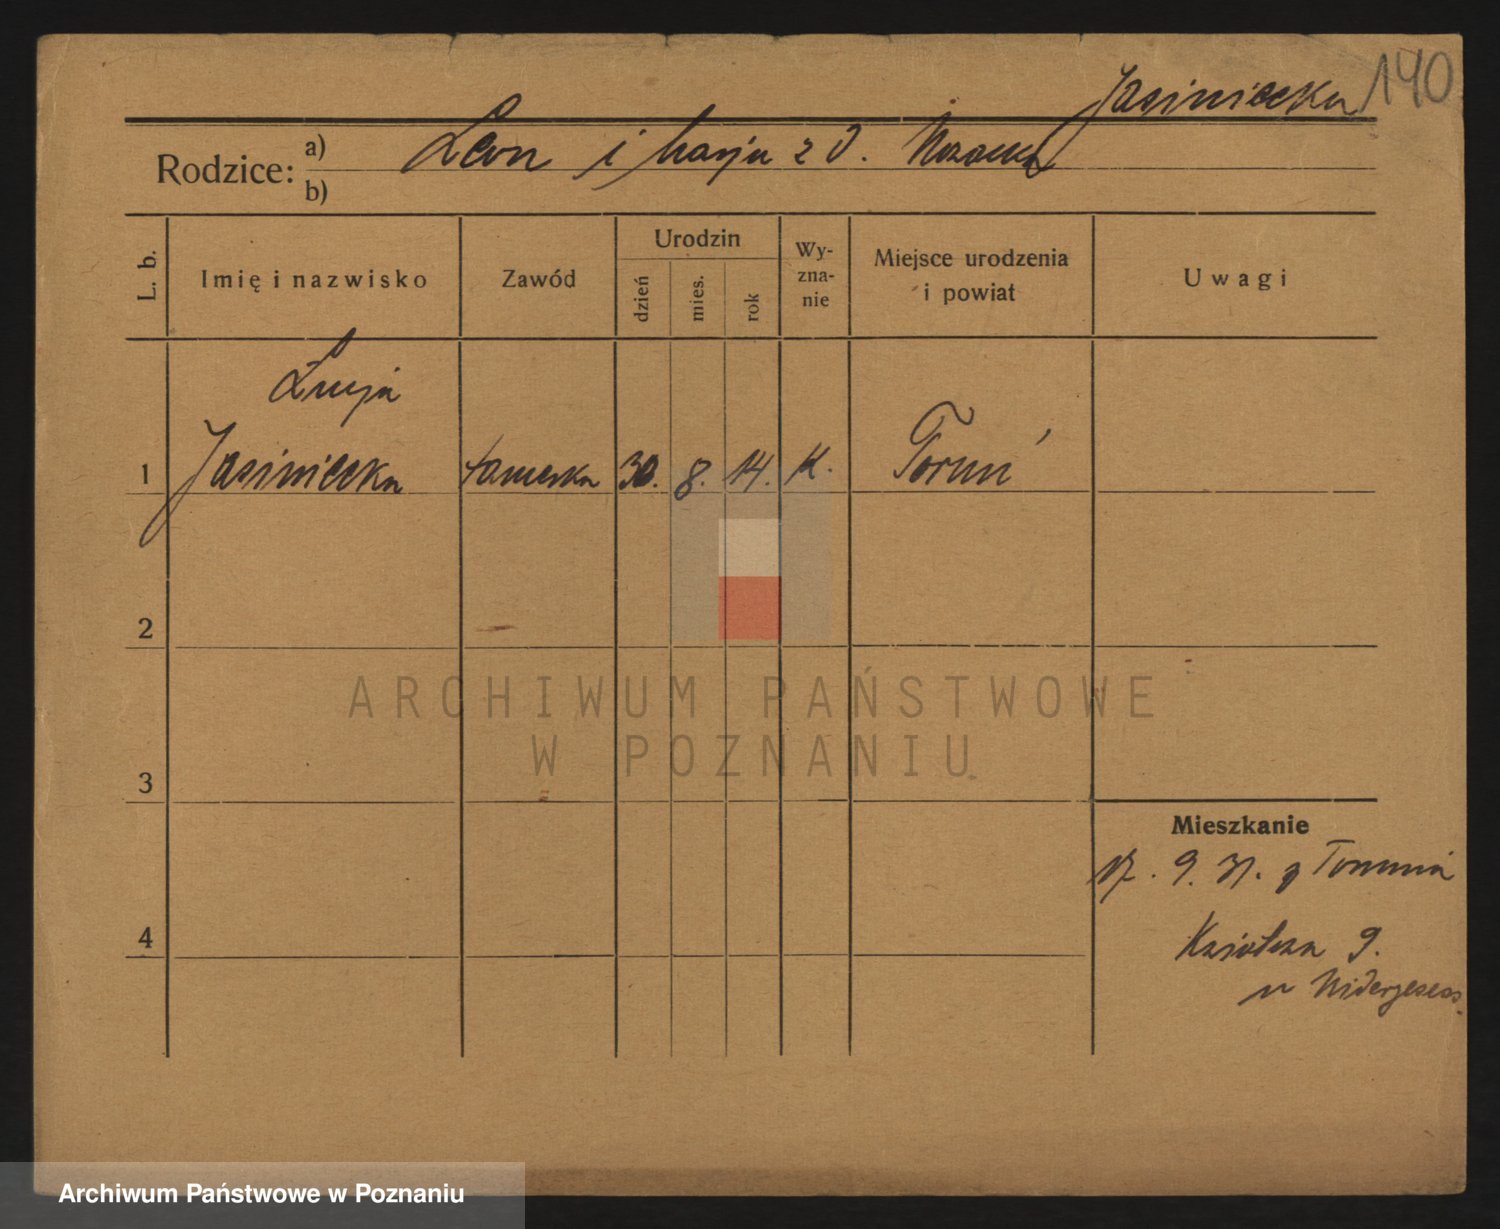 Jasiniecka 140
Rodzice: a) Leon i Marja z d.
b)
L. b.
Imię i nazwisko
Zawód
Urodzin
dzień
mies.
rok
Wy-
zna-
nie
Miejsce urodzenia
i powiat
Uwagi
Lucja
1 Jasiniecka 30. 8. 14. K. Toruń
2
3
4
Mieszkanie
9. 31. z Torunia
9.
u
ARCHIWUM PAŃSTWOWE
W POZNANIU
Archiwum Państwowe w Poznaniu